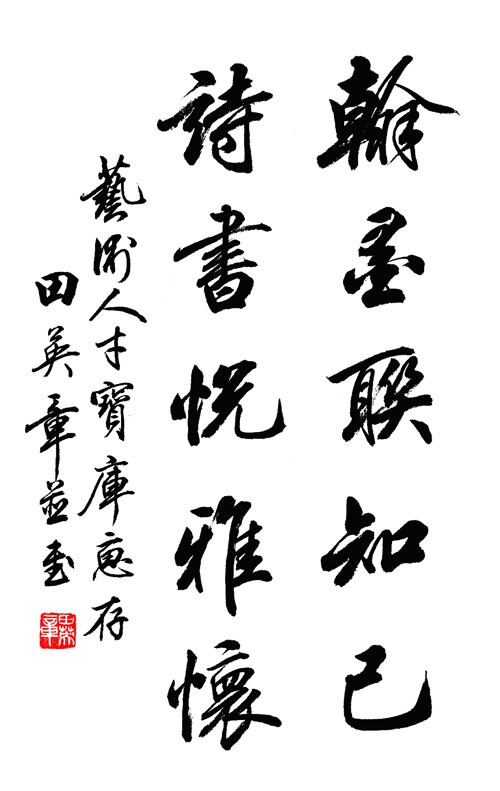 翰墨聯知己
詩書悦雅懷
藝術人才寶庫惠存
田英章並書